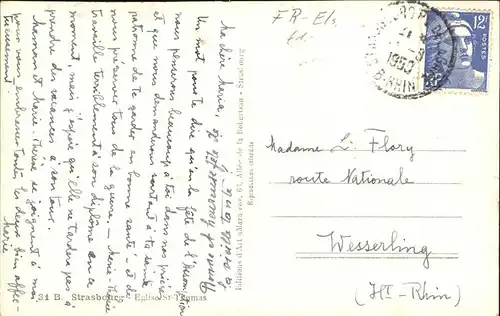 Ma chère Maria,
Un mot pour te dire qu'en la fête de l'Assomption
nous penserons beaucoup à toi dans nos prières
que nous demandrons surtout à ta sainte
patronne de te garder en bonne santé - et de
nous préserver tous de la guerre. - Marie-Thérèse
travaille terriblement à son diplôme en ce
moment, mais j'espère qu'elle ne tardera pas à
prendre des vacances à son tour.
Maman et Marie-Thérèse se joignent à moi
pour vous embrasser toutes les deux bien affec-
tueusement
Marie
31 B. Strasbourg - Eglise St-Thomas
Editions d'Art 61, Allée de la Robertsau - Strasbourg
FR-Els
1953
B-RHIN
12F
POSTES
Madame L. Flory
route Nationale
Wesserling
(Ht-Rhin)